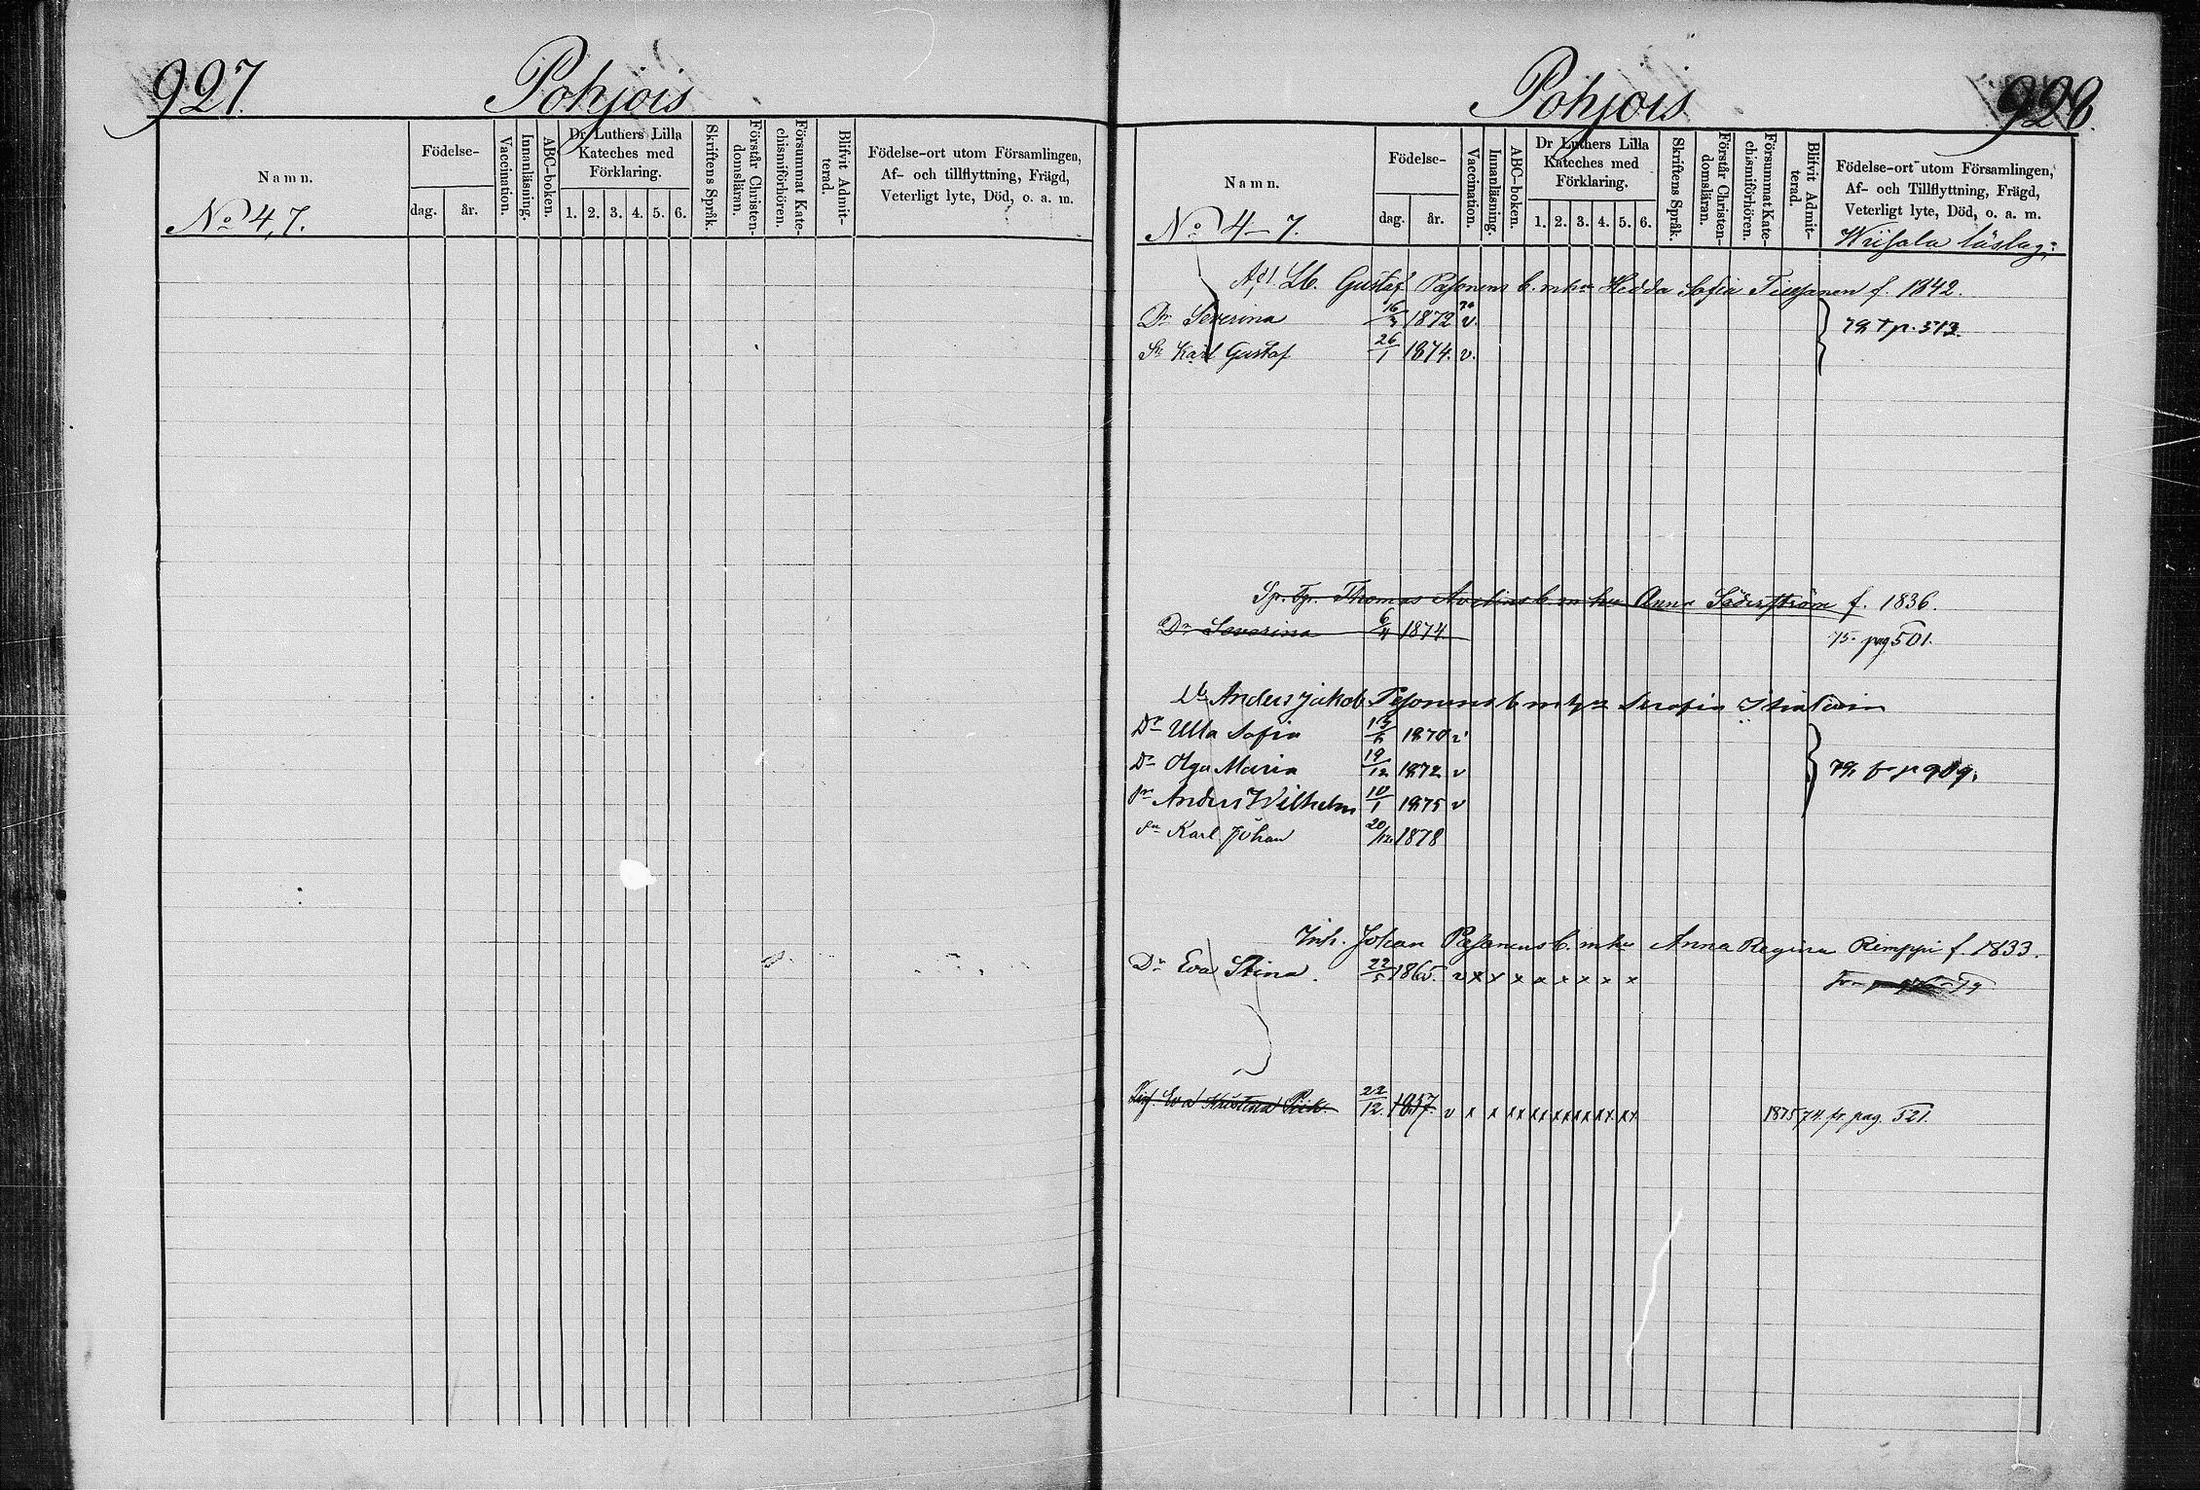 927.
Pohjois
Namn.
Födelse-
dag. år.
Vaccination.
Innanläsning.
ABC-boken.
Dr Luthers Lilla
Kateches med
Förklaring.
1. 2. 3. 4. 5. 6.
Skriftens Språk.
Förstår Christen-
domsläran.
Försummat Kate-
chismiförhören.
Blifvit Admit-
terad.
Födelse-ort utom Församlingen,
Af- och tillflyttning, Frägd,
Veterligt lyte, Död, o. a. m.
No 4, 7.
Pohjois
928.
Namn.
Födelse-
dag. år.
Vaccination.
Innanläsning.
ABC-boken.
Dr Luthers Lilla
Kateches med
Förklaring.
1. 2. 3. 4. 5. 6.
Skriftens Språk.
Förstår Christen-
domsläran.
Försummat Kate-
chismiförhören.
Blifvit Admit-
terad.
Födelse-ort utom Församlingen,
Af- och Tillflyttning, Frägd,
Veterligt lyte, Död, o. a. m.
No 4-7.
Gustaf Pasonens b. m hu Hedda Sofia f. 1842.
Dr Severina 16/3 1872 v.
Sn Karl Gustaf 26/1 1874. v.
79 p. 513
Thomas b. m hu Anna Söderström f. 1836.
Dr Severina 6/4 1874
75 pag 501.
Anders Jakob Pesonens b m hu Serafia
Dr Ulla Sofia 1870 v
Dr Olga Maria 19/12 1872 v
79, fr p 909.
sn Anders Wilhelm 10/1 1875 v
sn Karl Johan 20/12 1878
Inh. Johan Pasonens b. m hu Anna Regina Rimppi f. 1833.
Dr Eva Stina. 22/5 1865. v x x x x x x x x
Eva Kristina 22/12. 1857. v x x xx xx xx xx xx xx xx
1875 74 fr pag. 521.